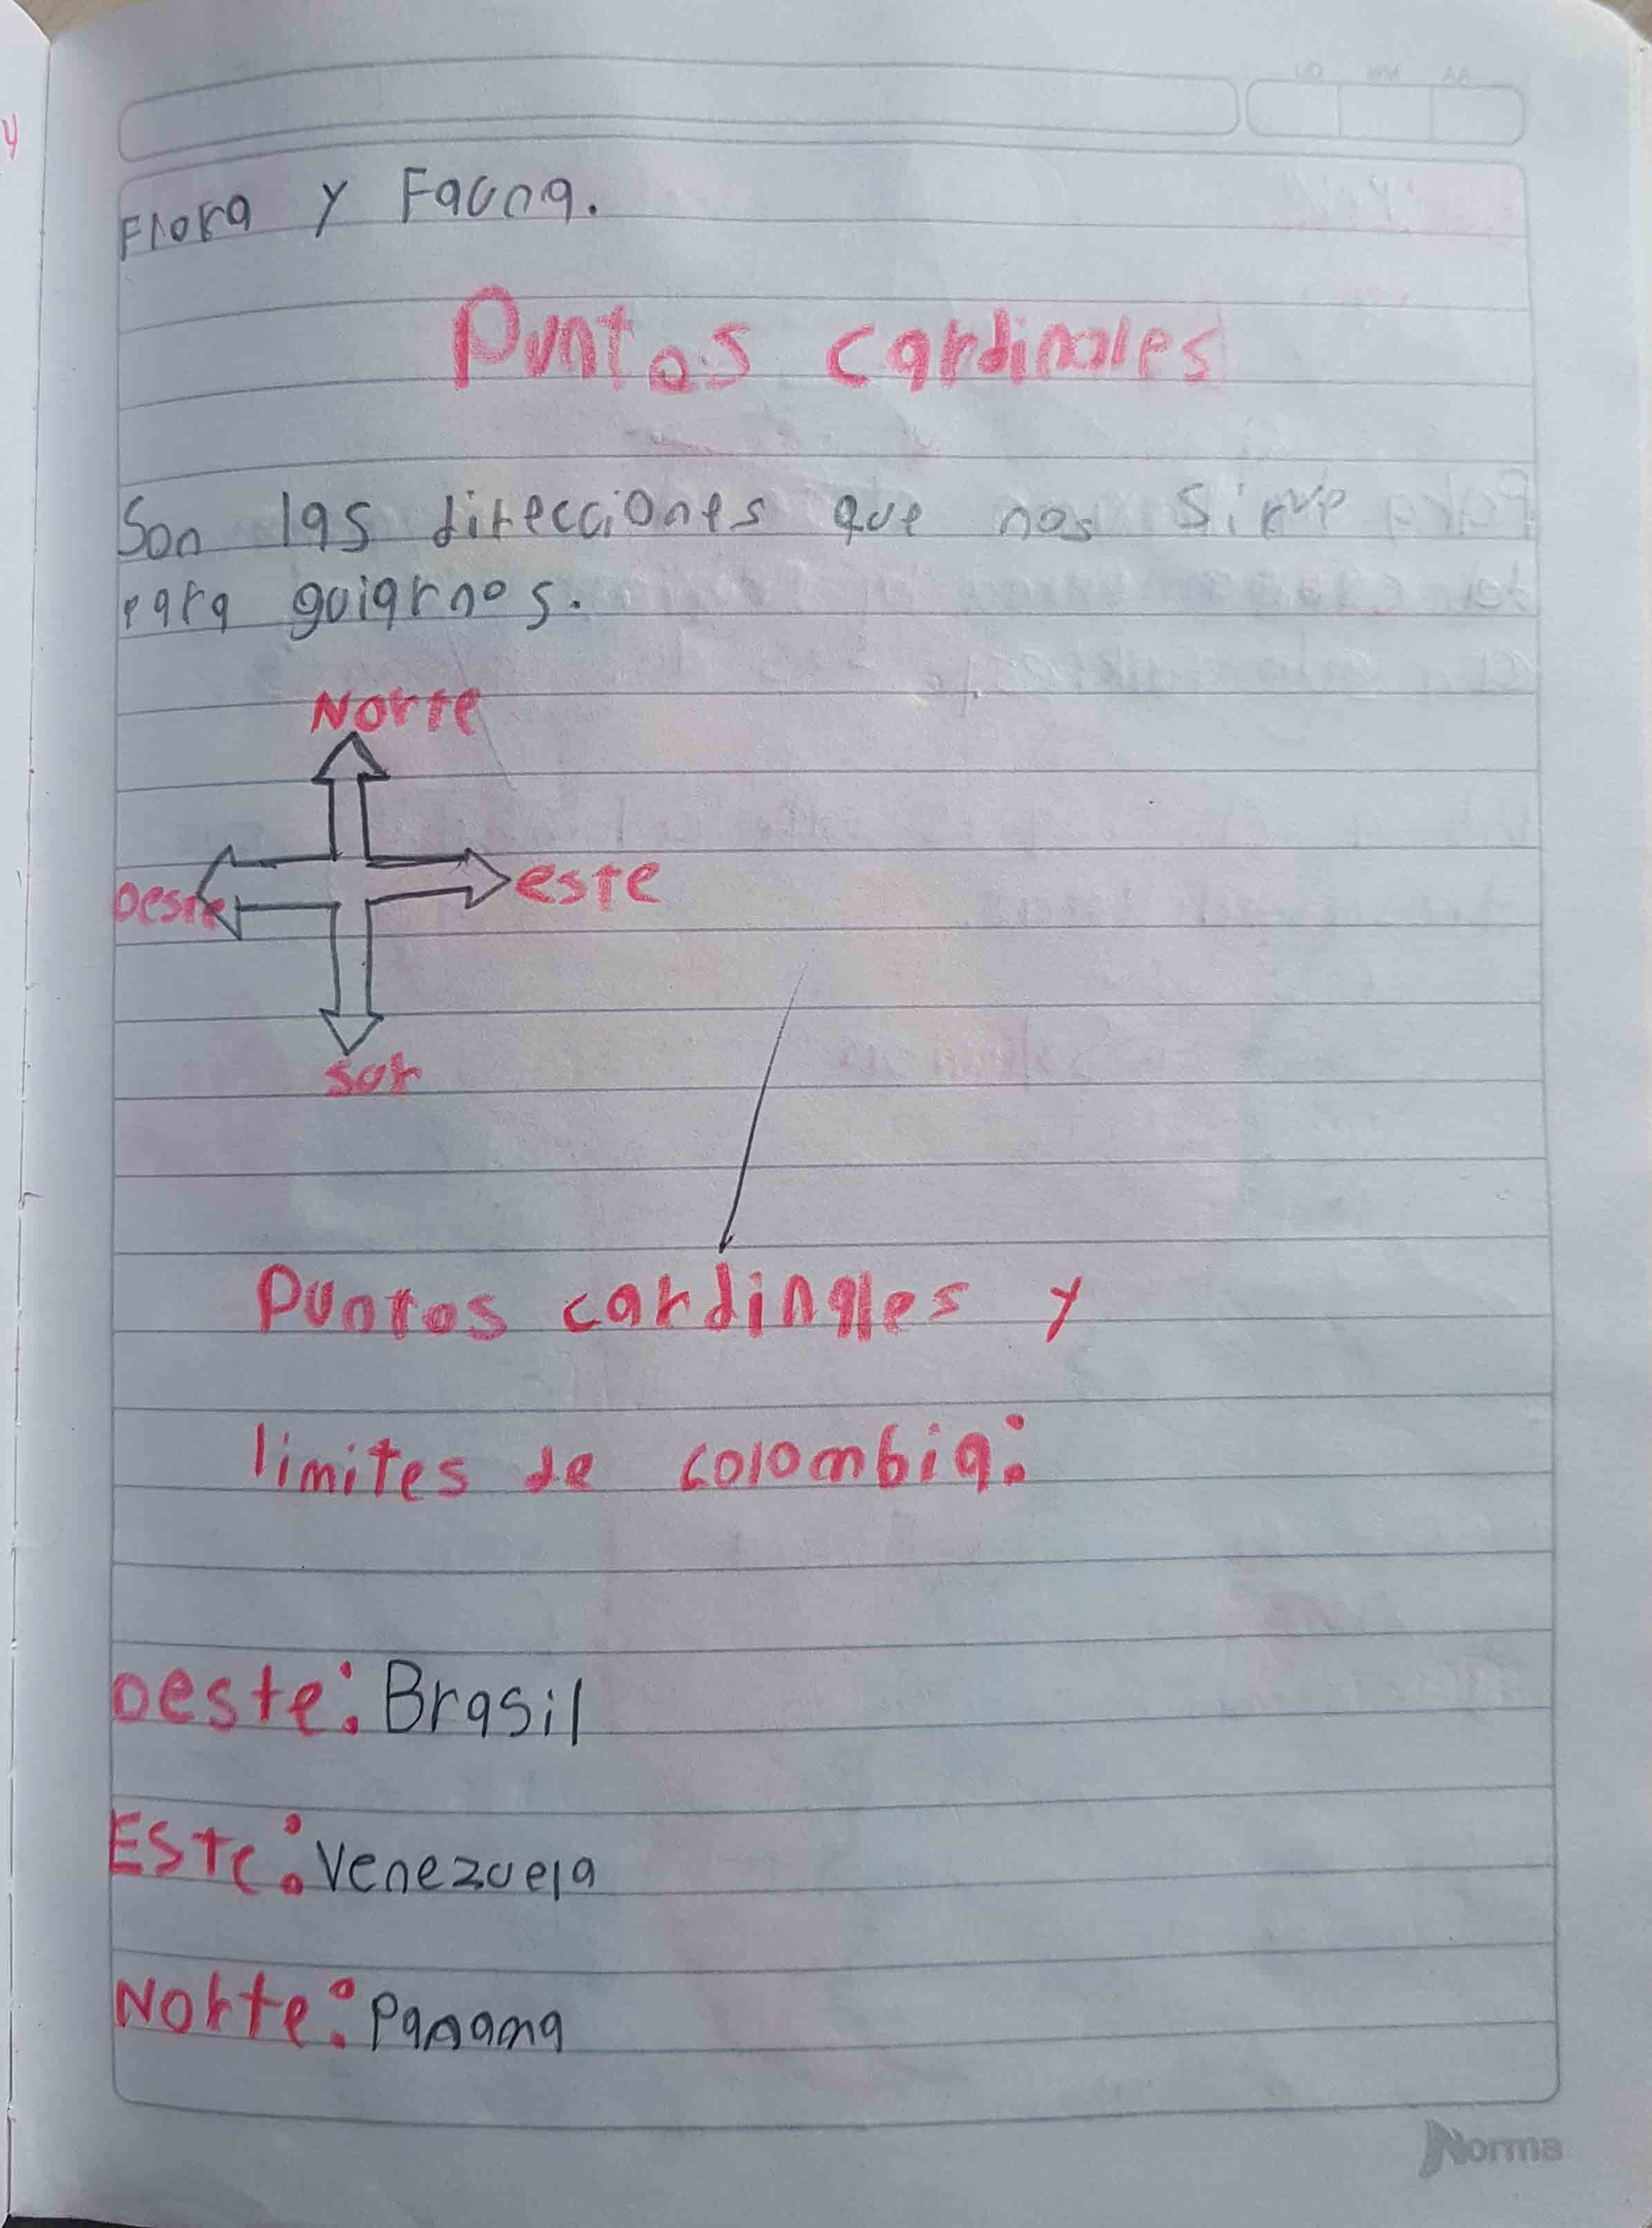 Flora y Fauna.
Puntos cardinales
Son las direcciones que nos sirve
para guiarnos.
Norte
oeste
este
sur
Puntos cardinales y
limites de colombia:
oeste: Brasil
Este: Venezuela
Norte: Panama
Norma